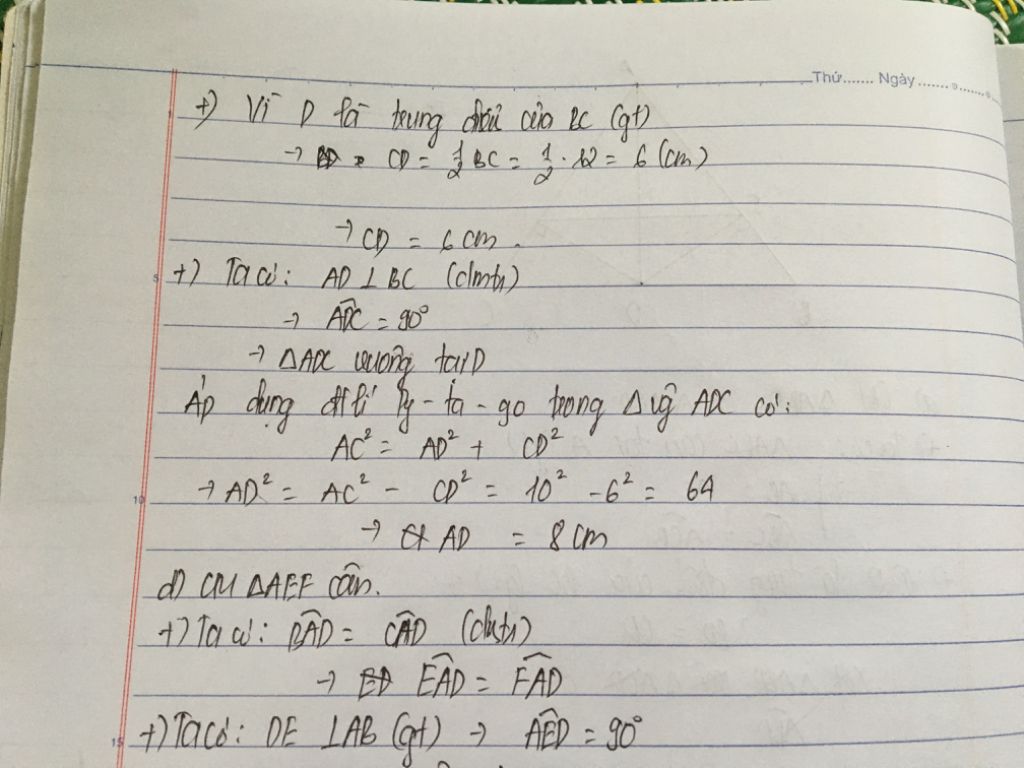 Thứ....... Ngày..........
+) Vì D là trung điểm của BC (gt)
→ CD = 1/2 BC = 1/2 . 12 = 6 (cm)
→ CD = 6 cm.
5 +) Ta có: AD ⊥ BC (cmtr)
→ ADC = 90°
→ ΔADC vuông tại D
Áp dụng đlí Py-ta-go trong Δvg ADC có:
AC² = AD² + CD²
10 → AD² = AC² - CD² = 10² - 6² = 64
→ AD = 8 cm
d) CM ΔAEF cân.
+) Ta có: BAD = CAD (cmtr)
→ EAD = FAD
15 +) Ta có: DE ⊥ AB (gt) → AED = 90°